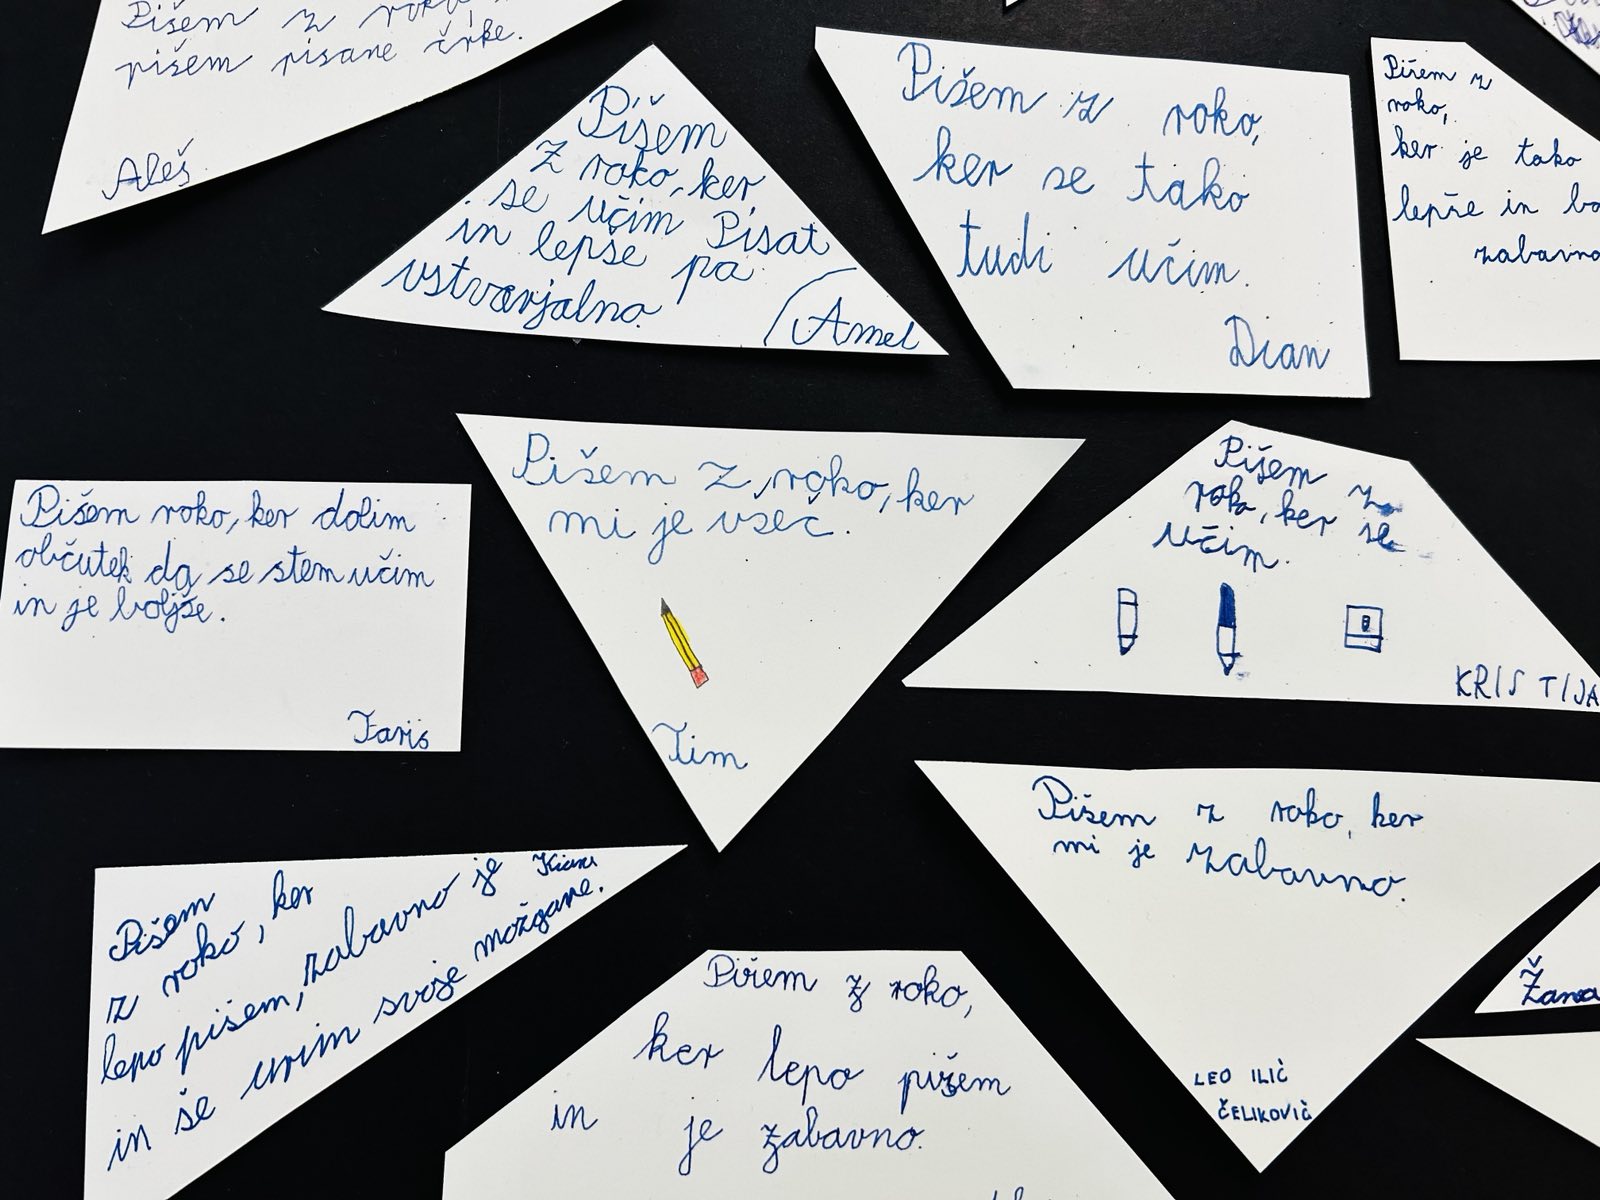 Pišem z roko
pišem pisane črke.
Aleš
Pišem
z roko, ker
se učim Pisat
in lepše pa
ustvarjalno.
Amel
Pišem z roko,
ker se tako
tudi učim.
Dian
Pišem z
roko,
ker je tako
lepše in
zabavno
Pišem roko, ker dolim
občutek da se stem učim
in je boljše.
Faris
Pišem z roko, ker
mi je všeč.
Tim
Pišem z
roko, ker se
učim.
KRISTIJA
Pišem
z roko, ker
lepo pišem, zabavno je
in še urim svoje možgane.
Kiara
Pišem z roko,
ker lepo pišem
in je zabavno.
Pišem z roko, ker
mi je zabavno.
LEO ILIĆ
ČELIKOVIĆ
Žana